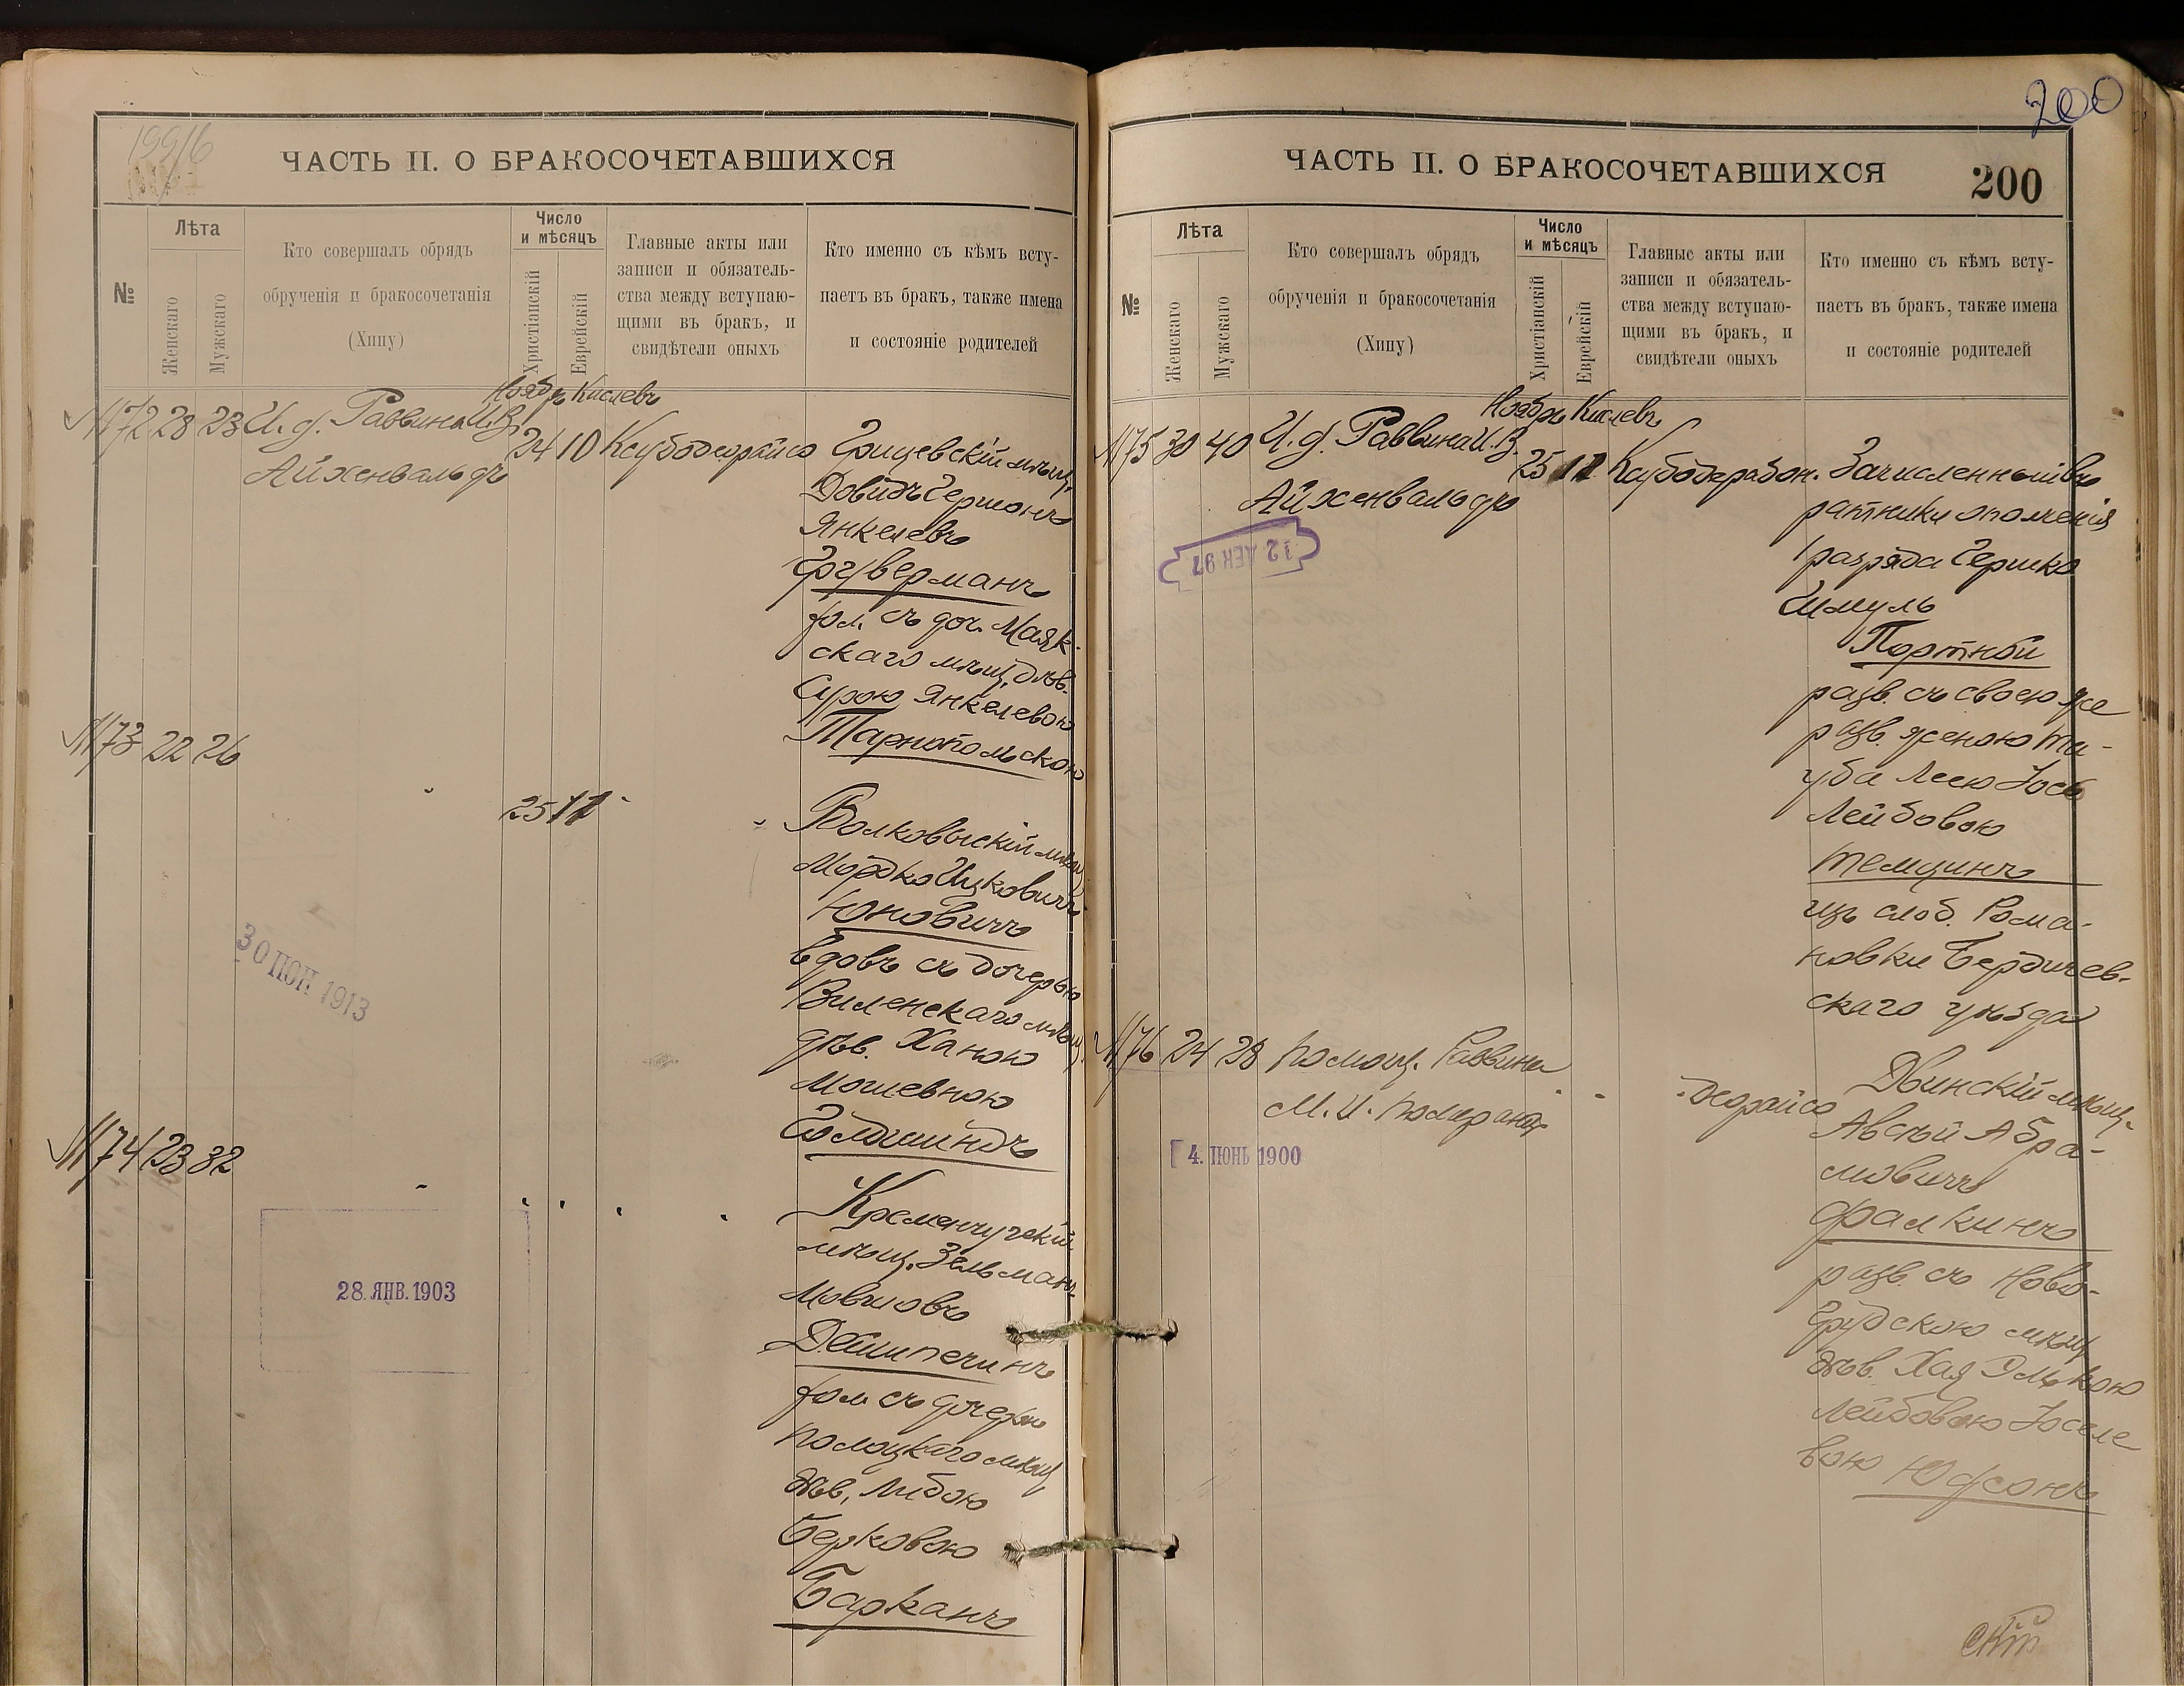 199/6
ЧАСТЬ II. О БРАКОСОЧЕТАВШИХСЯ
№
Лѣта
Женскаго
Мужскаго
Кто совершалъ обрядъ
обрученія и бракосочетанія
(Хипу)
Число
и мѣсяцъ
Христіанскій
Еврейскій
Главные акты или
записи и обязатель-
ства между вступаю-
щими въ бракъ, и
свидѣтели оныхъ
Кто именно съ кѣмъ всту-
паетъ въ бракъ, также имена
и состояніе родителей
Ноябрь Кислевъ
№72 28 23 И. д. Раввина И. В.
Айхенвальдъ
24 10 Ксубодеорайсо
Грицевскій мѣщ.
Довидъ Гершонъ
Янкелевъ
Груверманъ
хол. съ доч. Маяк-
скаго мѣщ. дѣв.
Сурою Янкелевою
Тарнопольскою
№73 22 26
25 11
Волковыскій мѣщ.
Мордко Ицковичъ
Юновичъ
вдовъ съ дочерью
Виленскаго мѣщ.
дѣв. Ханою
Мошевною
Гольдшиндъ
30 ІЮН 1913
№74 23 32
Кременчугскій
мѣщ. Зельманъ
Мовшовъ
Дешипечинъ
хол. съ дочерью
Полоцкаго мѣщ.
дѣв. Либою
Берковою
Барканъ
28. ЯНВ. 1903
200
ЧАСТЬ II. О БРАКОСОЧЕТАВШИХСЯ
200
№
Лѣта
Женскаго
Мужскаго
Кто совершалъ обрядъ
обрученія и бракосочетанія
(Хипу)
Число
и мѣсяцъ
Христіанскій
Еврейскій
Главные акты или
записи и обязатель-
ства между вступаю-
щими въ бракъ, и
свидѣтели оныхъ
Кто именно съ кѣмъ всту-
паетъ въ бракъ, также имена
и состояніе родителей
Ноябрь Кислевъ
№75 30 40 И. д. Раввина И. В.
Айхенвальдъ
25 11 Ксубодерабон.
12 ДЕК 97
Зачисленный въ
ратники ополченія
1 разряда Гершко
Шмуль
Портной
разв. съ своею же
разв. женою
Леею Іось
Лейбовою
Темцинъ
изъ слоб. Рома-
новки Бердичев-
скаго уѣзда
№76 24 28 Помощ. Раввина
М. И. Померанцъ
деорайсо
4. ІЮНЬ 1900
Двинскій мѣщ.
Авсѣй Абра-
мовичъ
Фалкинъ
разв. съ Ново-
Грудскою мѣщ.
дѣв. Хая Элькою
Лейбовою Іоселе
вою Юфсонъ